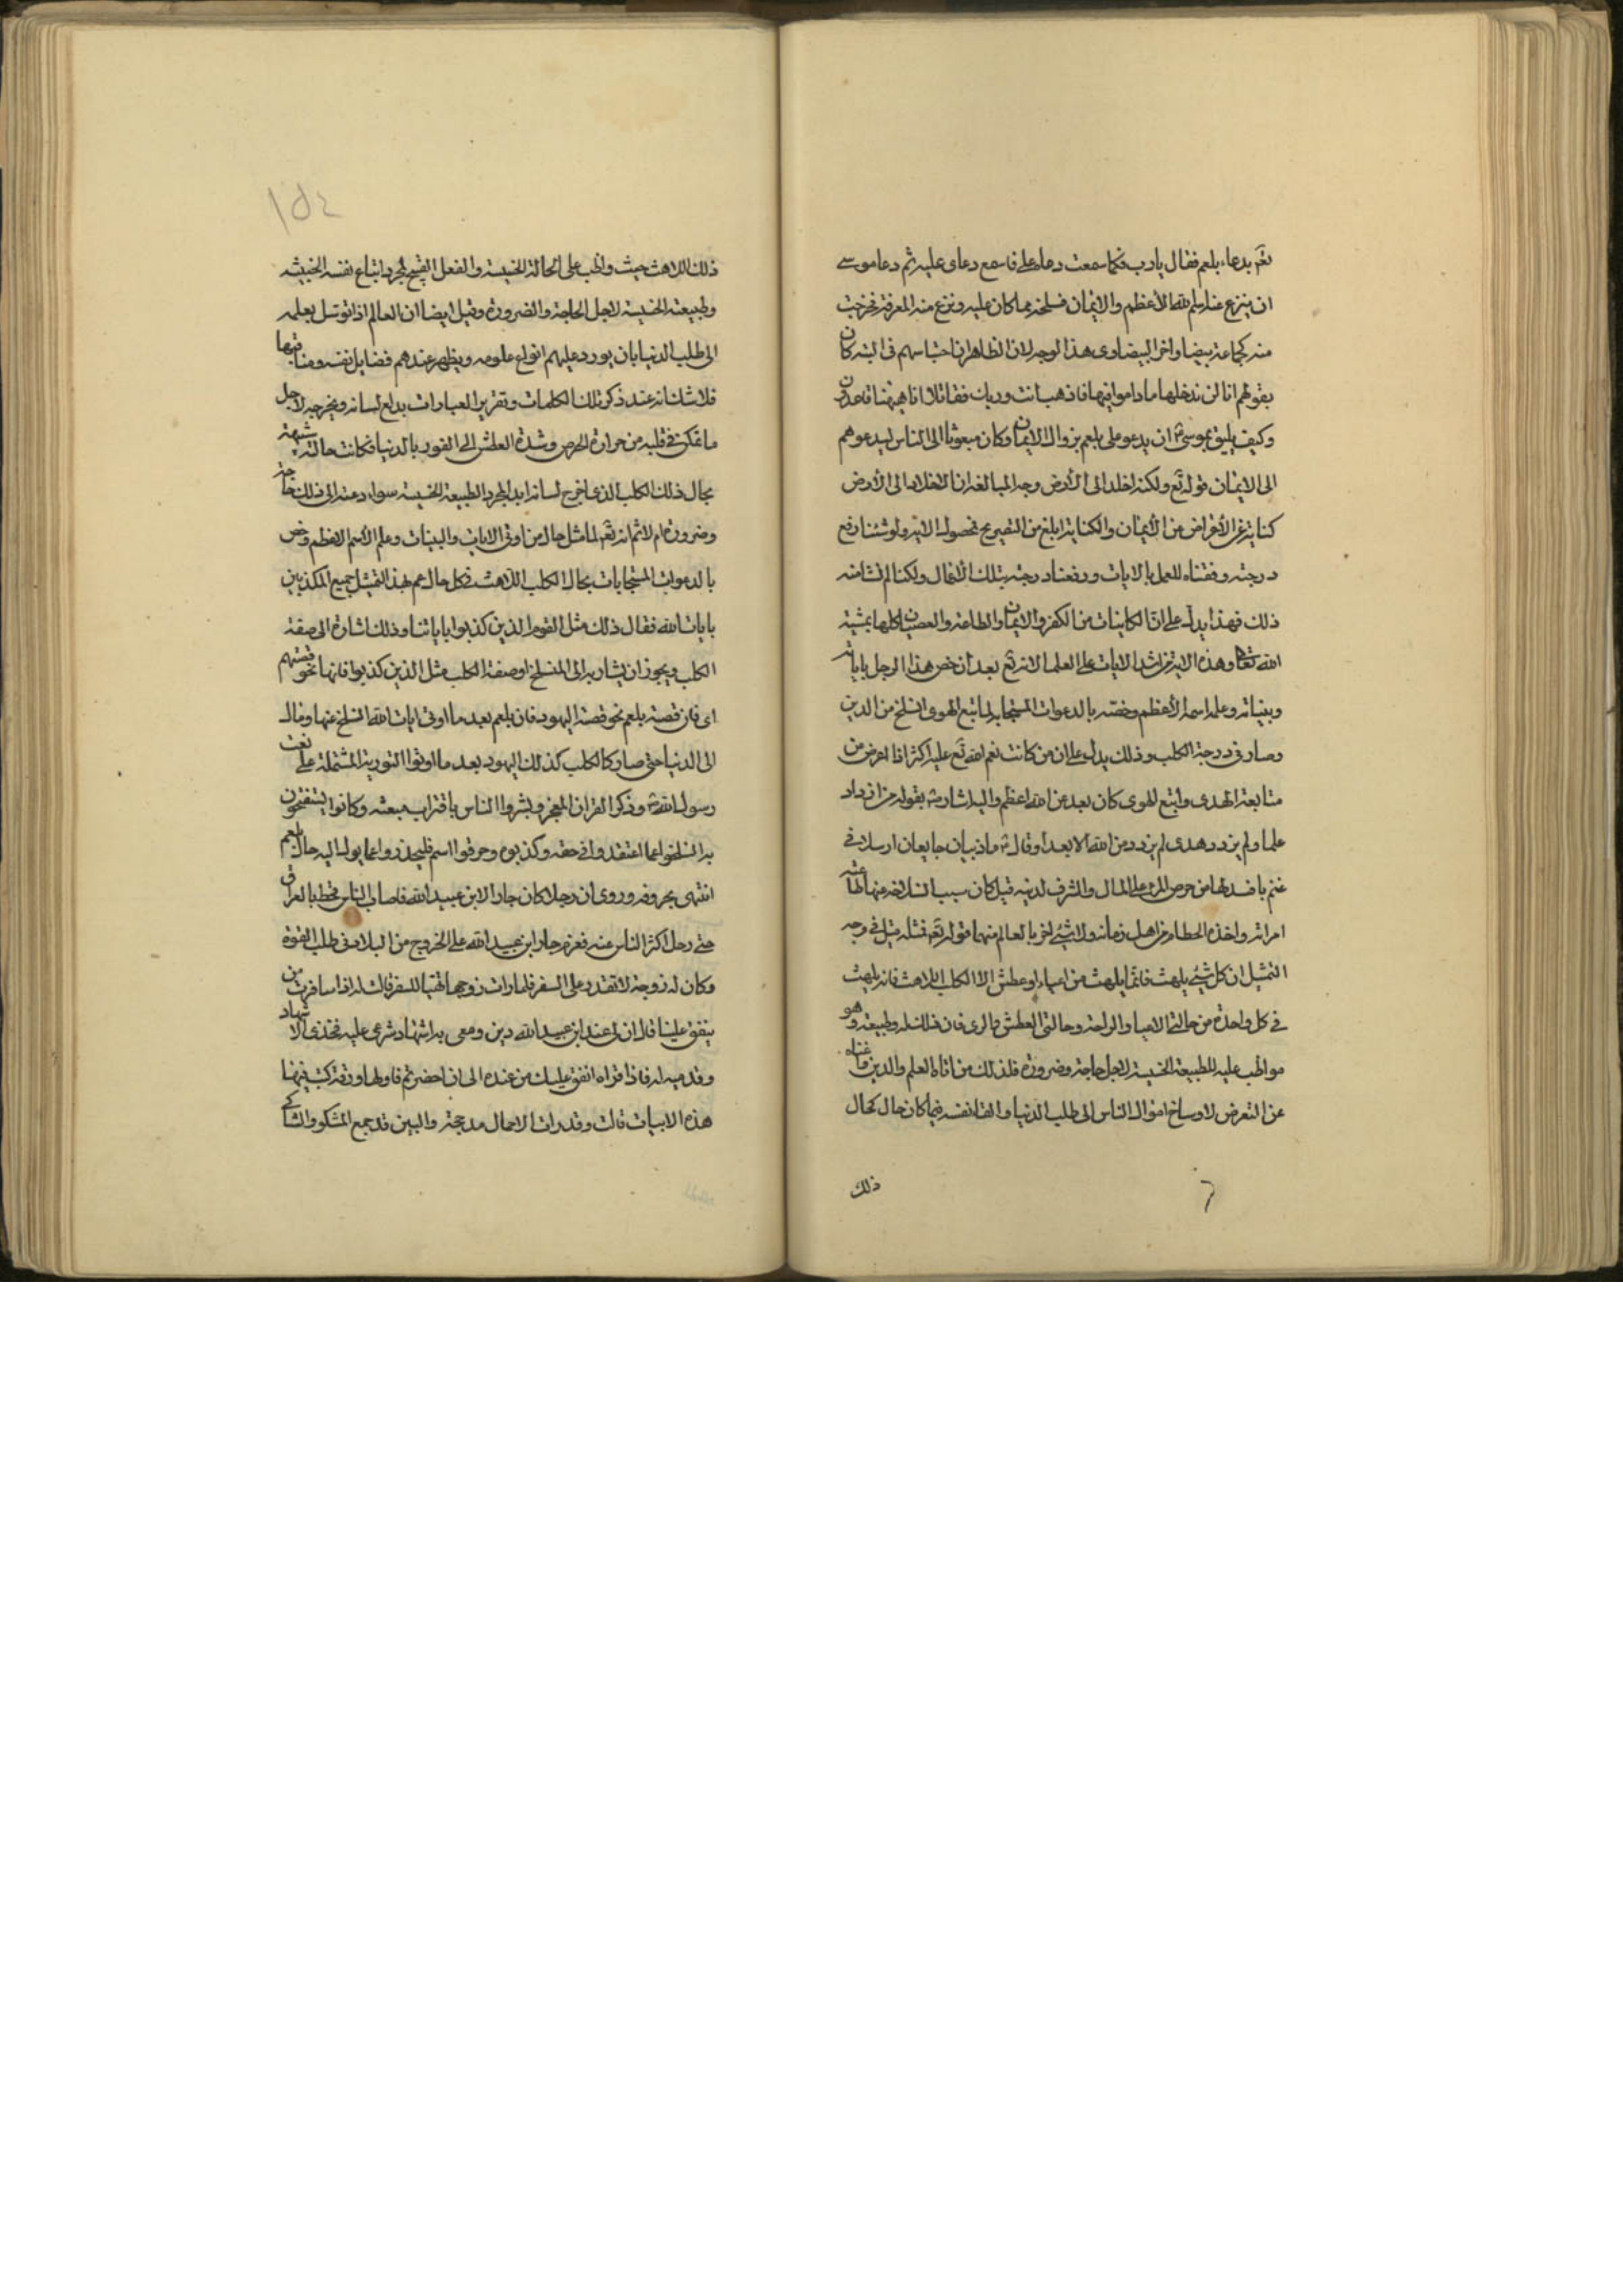 تعَ بدعاء بلعم فقال يا رب فكما سمعت دعاه علي فاسمع دعاى عليه ثم دعا موسى
ان ينزع عنه اسم الله الأعظم والايمان فسلخه مما كان عليه ونزع منه المعرفة فخرجت
منه كحمامة بيضا واخر البيضاوى هذا الوجه لان الظاهر ان احتباسهم فى التيه كان
بقولهم انا لن ندخلها ما داموا فيها فاذهب انت وربك فقاتلا انا هيهنا قاعدون
وكيف يليق بموسى ان يدعو على بلعم بزوال الايمان وكان مبعوثا الى الناس ليدعوهم
الى الايمان قوله تع ولكنه اخلد الى الأرض وجه المبالغة ان الاخلاد الى الأرض
كناية عن الأعراض من الأيمان والكناية ابلغ من التصريح فحصول الاية ولو شئنا رفع
درجته وفقناه للعمل بالايات ورفعنا درجته بتلك الأعمال ولكنا لم نشا منه
ذلك فهذا يدل على ان الكاينات من الكفر والايمان والطاعة والعصيان كلها بمشية
الله تعالى وهذه الاية من اشد الايات على العلما لانه تع بعد أن خص هذا الرجل باياته
وبيناته وعلمه اسمه الأعظم وخصه بالدعوات المستجابة لما اتبع الهوى انسلخ من الدين
وصار فى درجة الكلب وذلك يدل على ان من كانت نعم الله تع عليه اكثر اذا اعرض من
متابعة الهدى واتبع الهوى كان بعد من الله اعظم واليه اشار بقوله من ازداد
علما ولم يزدد هدى لم يزدد من الله الا بعدا وقال ما ذيبان جايعان ارسلا فى
غنم بافسد لها من حرص المرء على المال والشرف لدينه قيل كان سبب انسلاخه عنها طاعته
امراته واخذه الحطام من اهل زمانه ولا شيء اخر بالعالم منهما قوله تع فمثله قيل فى وجه
التمثيل ان كل شيء يلهث فانما يلهث من اعياء او عطش الا الكلب اللاهث فانه يلهث
فى كل واحدة من حالتى الاعيا والراحة وحالتى العطش والرى فان ذلك له وطبيعة وهو
مواظب عليه للطبيعة الخسيسة لا لاجل حاجة وضرورة فلذلك من اتاه العلم والدين واغناه
عن التعرض لاوساخ اموال الناس الى طلب الدنيا والقا نفسه فيها كان حاله كحال
ذلك
١٥٤
ذلك اللاهث حيث واظب على الحالة الخسيسة والفعل القبيح لمجرد اتباع نفسه الخبيثه
وطبيعته الخسيسة لا لاجل الحاجة والضرورة وقيل ايضا ان العالم اذا توسل بعلمه
الى طلب الدنيا بان يورد عليهم انواع علومه ويظهر عندهم فضايل نفسه ومناقبها
فلا شك انه عند ذكر تلك الكلمات وتقرير العبارات يدلع لسانه ويخرجه لاجل
ما تمكن فى قلبه من حرارة الحرص وشدة العطش الى الفوز بالدنيا فكانت حالته شبيهة
بحال ذلك الكلب الذى اخرج لسانه ابدا لمجرد الطبيعة الخسيسة سواء دعته الى ذلك حاجة
وضرورة ام لا ثم انه تع لما مثل حال من اوتى الايات والبينات وعلم الأسم الاعظم وخص
بالدعوات المستجابات بحالة الكلب اللاهث فكل حال عم بهذا التمثيل جميع المكذبين
بايات الله فقال ذلك مثل القوم الذين كذبوا باياتنا وذلك اشارة الى صفة
الكلب ويجوز ان يشار به الى المنسلخ او صفة الكلب مثل الذين كذبوا فانها نحو قصتهم
اى فان قصة بلعم نحو قصة اليهود فان بلعم بعد ما اوتى ايات الله انسلخ عنها ومال
الى الدنيا حتى صار كالكلب كذلك اليهود بعد ما اوتوا التورية المشتملة على نعت
رسول الله وذكر القران المعجز وبشروا الناس باقتراب مبعثه وكانوا يستفتحون
به انسلخوا عما اعتقدوا فى حقه وكذبوه وحرفوا اسمه فليحذروا عما يول اليه حال بلعم
انتهى بحروفه وروى ان رجلا كان جارا لابن عبيد الله فاصاب الناس قحط بالعراق
حتى رحل اكثر الناس عنه فعزم جار ابن عبيد الله على الخروج من البلاد فى طلب القوة
وكان له زوجة لا تقدر على السفر فلما رات زوجها تهيا للسفر قالت له اذا سافرت من
ينفق علينا قال ان لى عند ابن عبيد الله دين ومعى به اشهاد شرعى عليه فخذى الاشهاد
وقدميه له فاذا قراه انفق عليك من عنده الى ان احضر ثم ناولها ورقة كتب فيها
هذه الابيات قالت وقد رات الاحمال مدججة والبين قد جمع المشكو والشاكى